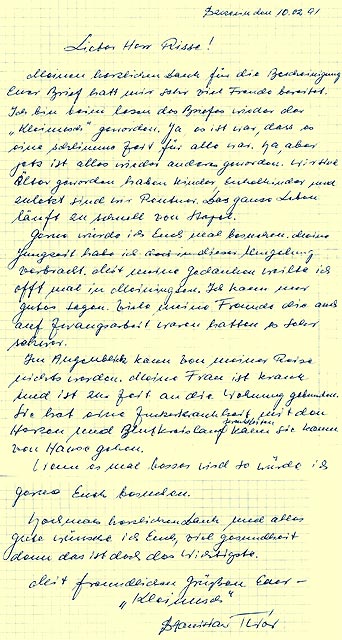 den 10.02.91
Lieber Herr Risse!
Meinen herzlichen Dank für die Bescheinigung
Euer Brief hatt mir sehr viel Freude bereitet.
Ich bin beim lesen des Briefes wieder der
"Kleinusch" geworden. Ja, es ist war, dass es
eine schlimme Zeit für alle war. Ja aber
jetz ist alles wieder anders geworden. wir sind
Älter geworden haben Kinder, Enkelkinder und
zuletzt sind wir Rentner. Das ganze Leben
läuft zu schnell von Hagen.
Gerne würde ich Euch mal besuchen. Meine
Jungzeit habe ich in dieser Umgebung
verbracht. Mit meine Gedanken weilte ich
offt mal in Meiningsen. Ich kann nur
gutes sagen. Viele meine Freunde die auch
auf Zwangsarbeit waren hatten es sehr
schwer.
Im Augenblick kann von meiner Reise
nichts werden. Meine Frau ist krank
und ist zur Zeit an die Wohnung gebunden.
Sie hat eine Zuckerkrankheit, mit dem
Herzen und Blutkreislauf krankheiten kaum Sie kann
von Hause gehen.
Wenn es mal besser wird so würde ich
gerne Euch besuchen.
Nochmals herzlichen Dank und alles
gute wünsche ich Euch, viel gesundheit
denn das ist doch das Wichtigste.
Mit freundlichen grüßen Euer –
"Kleinusch"
Stanislav